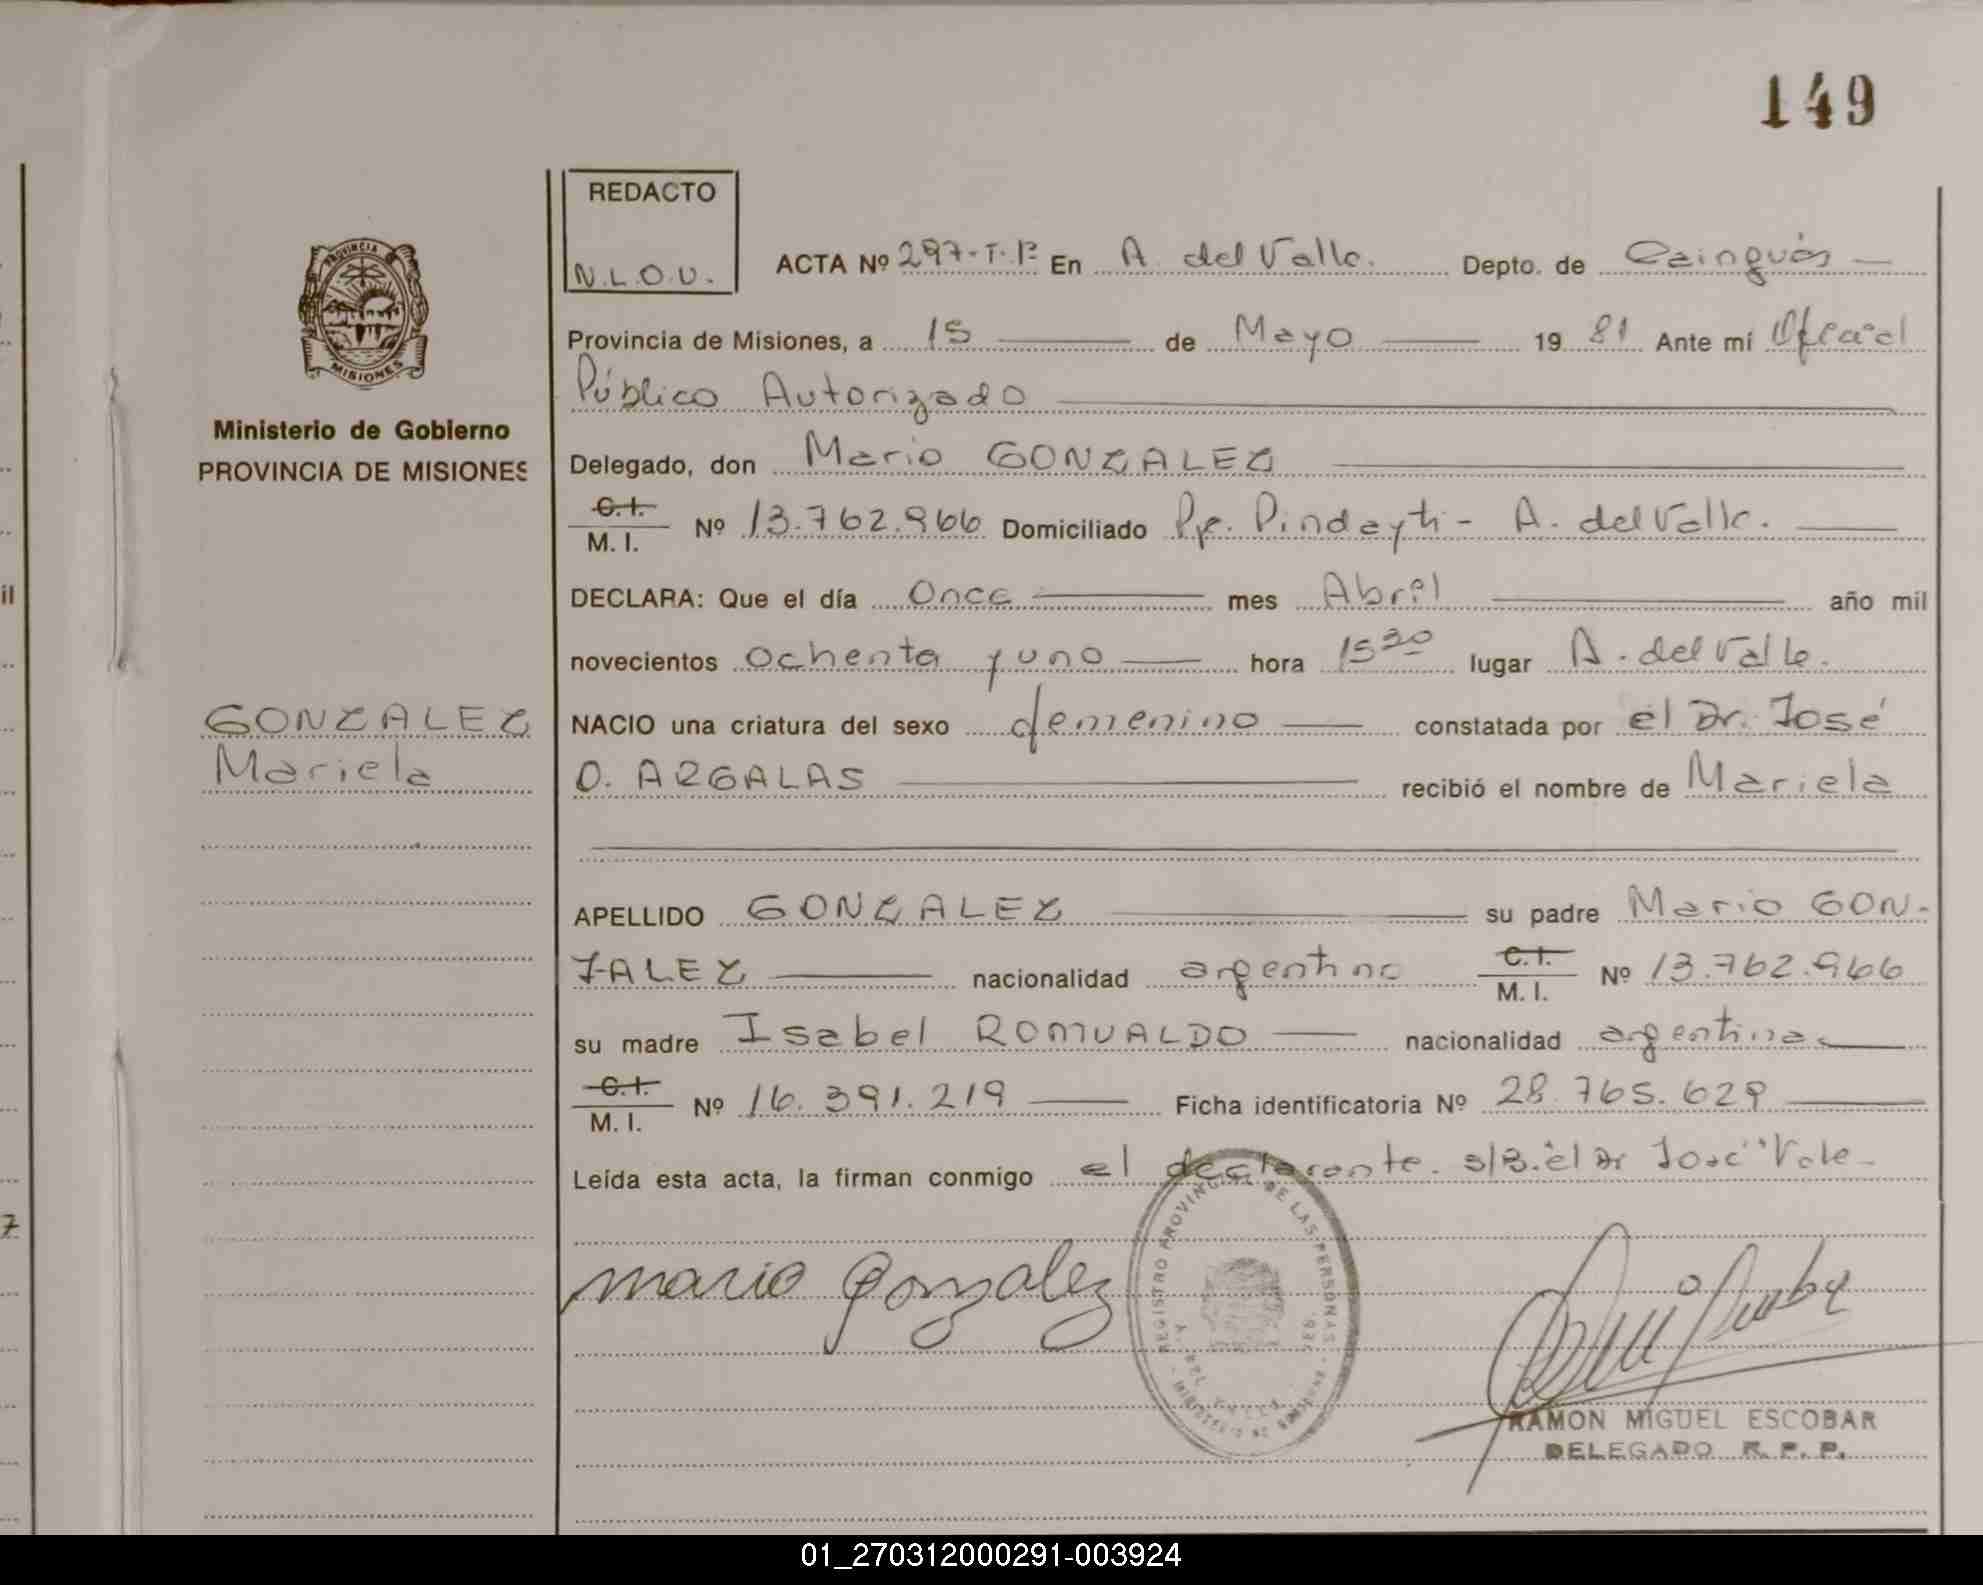 149
REDACTO
N.L.O.U.
ACTA Nº 297-T.I° En A. del Valle. Depto. de Cainguás
Provincia de Misiones, a 15 de Mayo 1981 Ante mí Oficial
Público Autorizado
Delegado, don Mario GONZALEZ
C.I. / M. I. Nº 13.762.966 Domiciliado Pje. Pindayti - A. del Valle.
DECLARA: Que el día Once mes Abril año mil
novecientos ochenta y uno hora 15³⁰ lugar A. del Valle.
NACIO una criatura del sexo femenino constatada por el Dr. José
O. ARGALAS recibió el nombre de Mariela
APELLIDO GONZALEZ su padre Mario GON-
ZALEZ nacionalidad argentino C.I. / M. I. Nº 13.762.966
su madre Isabel ROMUALDO nacionalidad argentina
C.I. / M. I. Nº 16.391.219 Ficha identificatoria Nº 28.765.629
Leída esta acta, la firman conmigo el declarante. s/B. el Dr José" Vale-
mario gonzalez
RAMON MIGUEL ESCOBAR
DELEGADO R. P. P.
PROVINCIA
MISIONES
Ministerio de Gobierno
PROVINCIA DE MISIONES
GONZALEZ
Mariela
REGISTRO PROVINCIAL DE LAS PERSONAS
il
7
01_270312000291-003924